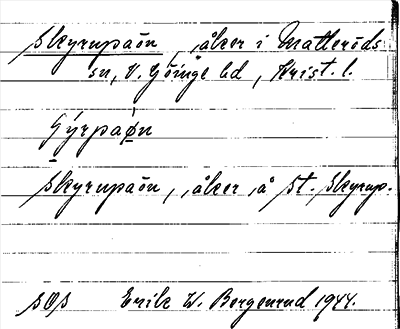 Skyrupaön, åker i Matteröds
sn, V. Göinge hd, Krist. l.
Skyrupaön, åker å St. Skyrup.
Erik W. Bergenrud 1944.